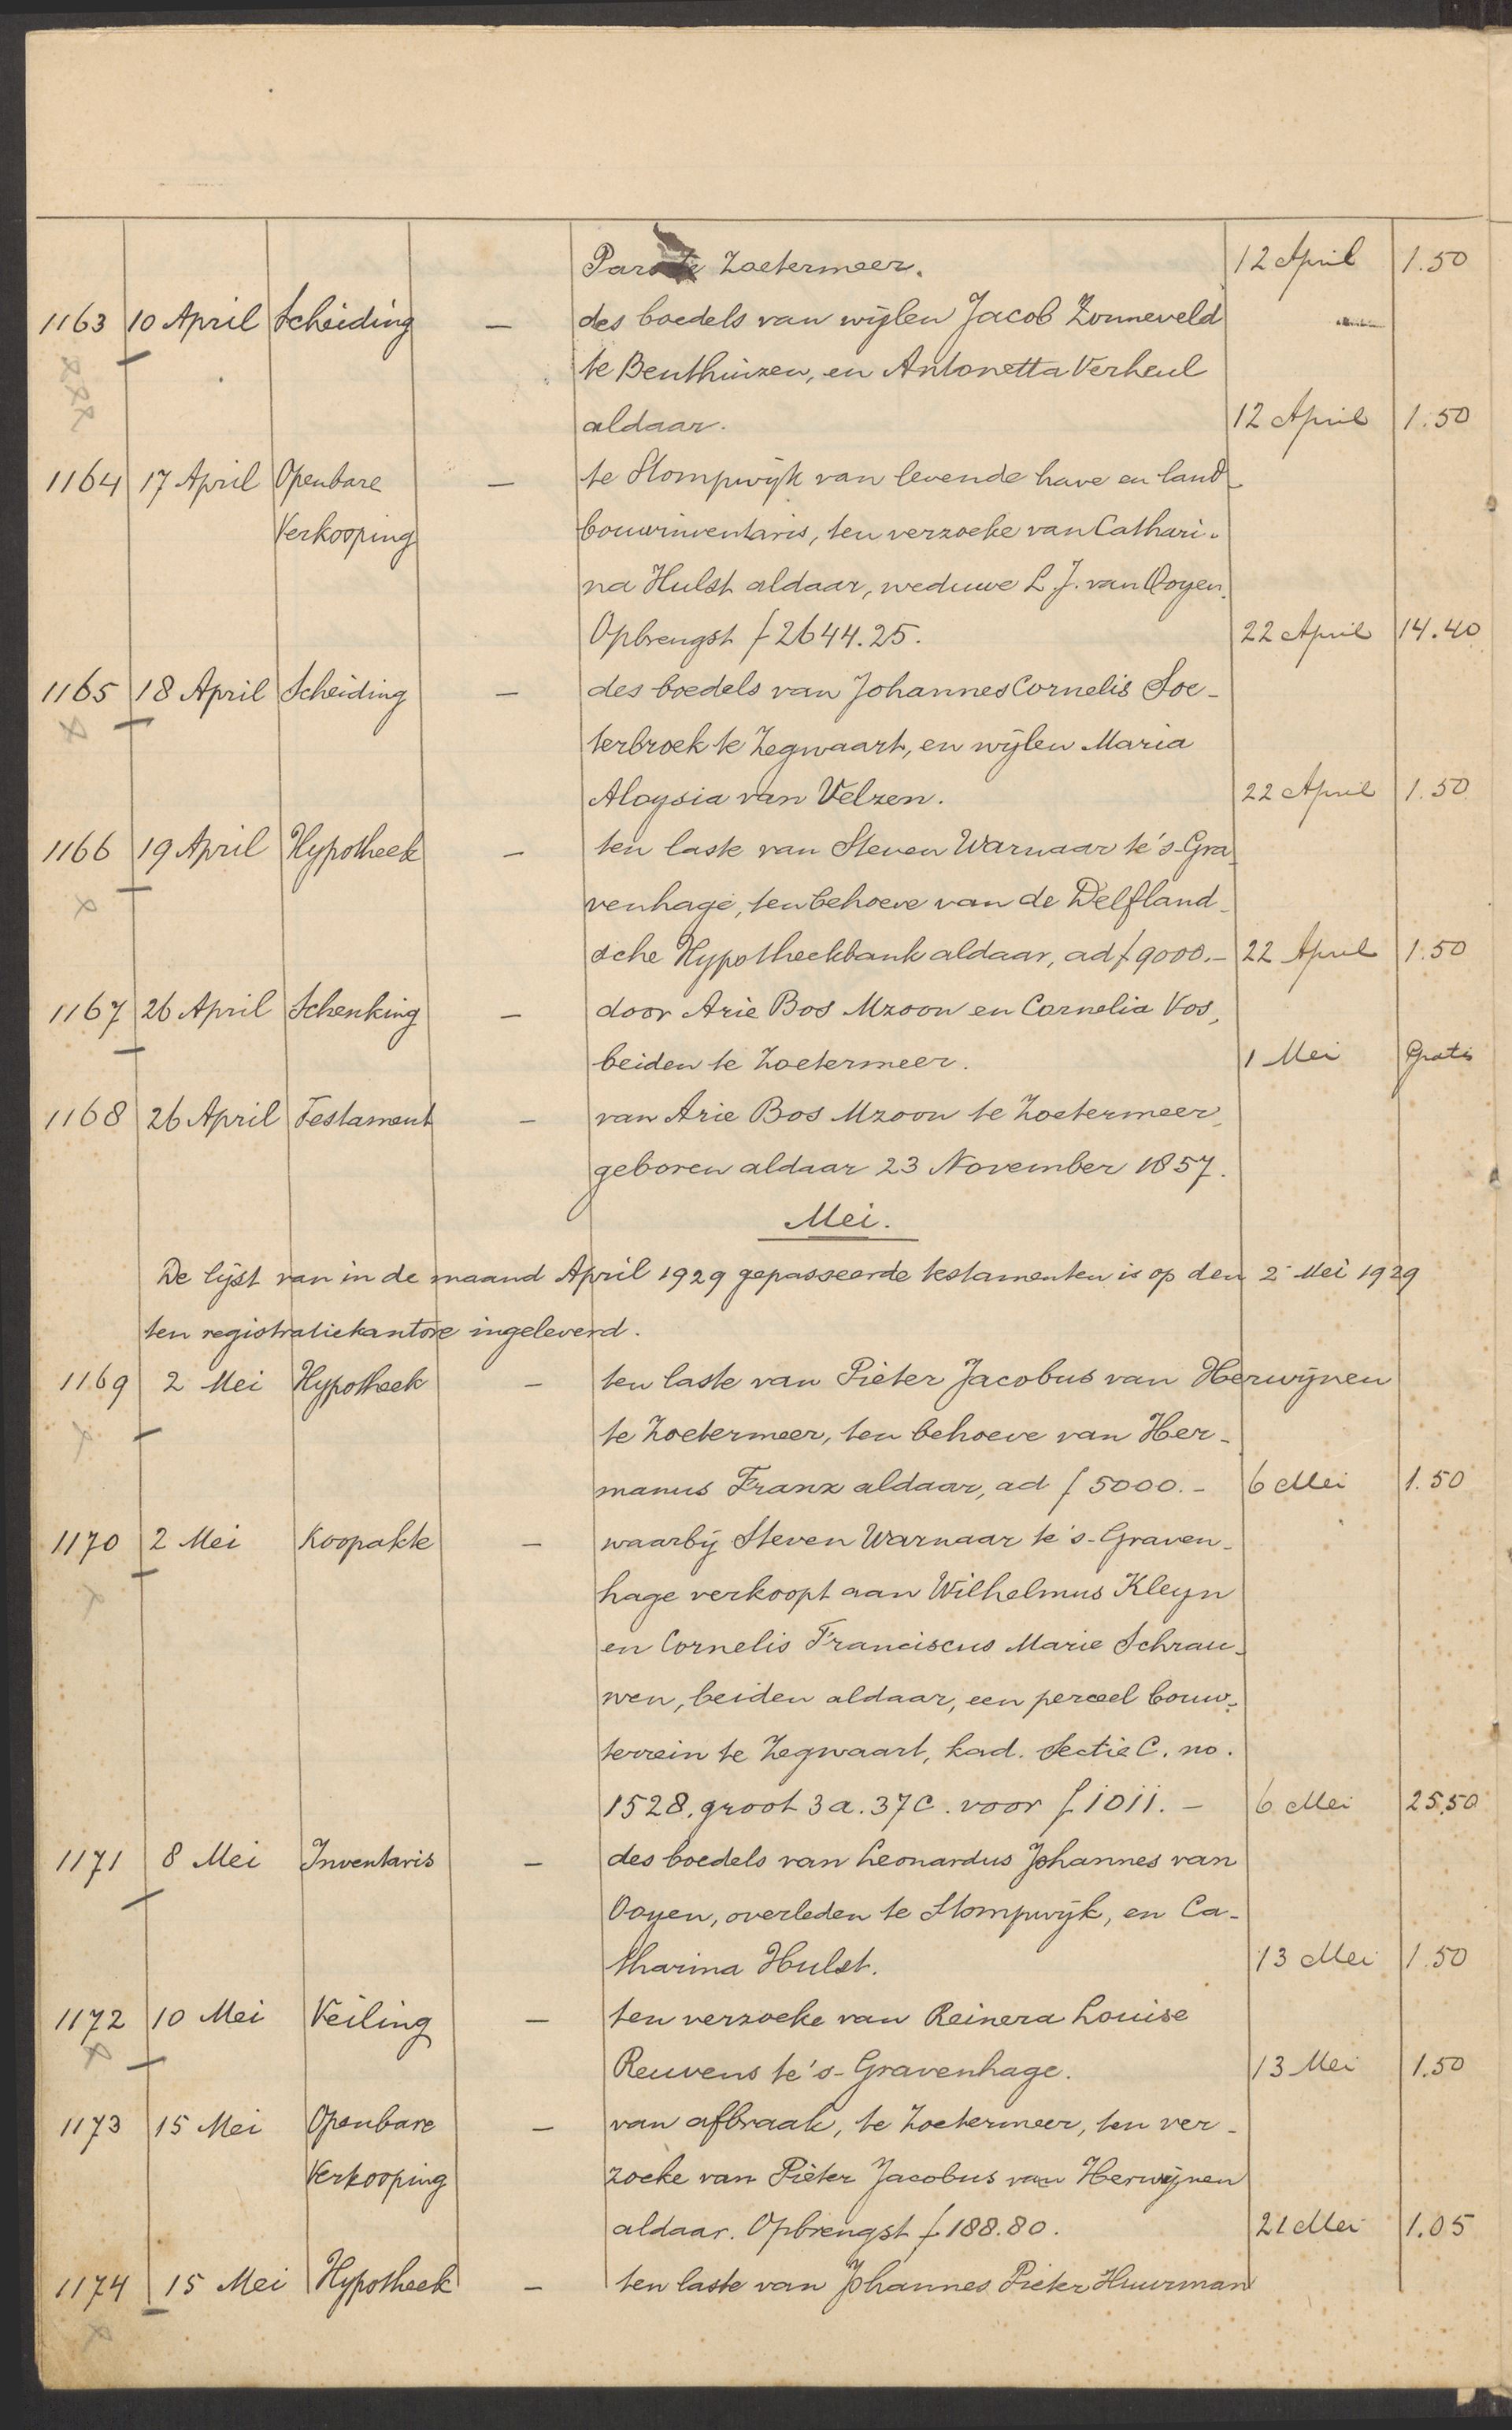 te Zoetermeer. 12 April 1.50
1163 10 April Scheiding — des boedels van wijlen Jacob Zonneveld
te Benthuizen, en Antonetta Verheul
aldaar. 12 April 1.50
1164 17 April Openbare — te Stompwijk van levende have en land-
Verkooping bouwinventaris, ten verzoeke van Cathari-
na Hulst aldaar, weduwe L. J. van Ooyen.
Opbrengst f 2644.25. 22 April 14.40
1165 18 April Scheiding — des boedels van Johannes Cornelis Soe-
terbroek te Zegwaart, en wijlen Maria
Aloysia van Velzen. 22 April 1.50
1166 19 April Hypotheek — ten laste van Steven Warnaar te 's-Gra-
venhage, ten behoeve van de Delfland-
sche Hypotheekbank aldaar, ad f 9000.— 22 April 1.50
1167 26 April Schenking — door Arie Bos Mzoon en Cornelia Vos,
beiden te Zoetermeer. 1 Mei Gratis
1168 26 April Testament — van Arie Bos Mzoon te Zoetermeer,
geboren aldaar 23 November 1857.
Mei.
De lijst van in de maand April 1929 gepasseerde testamenten is op den 2 Mei 1929
ten registratiekantore ingeleverd.
1169 2 Mei Hypotheek — ten laste van Pieter Jacobus van Herwijnen
te Zoetermeer, ten behoeve van Her-
manus Franx aldaar, ad f 5000.— 6 Mei 1.50
1170 2 Mei Koopakte — waarbij Steven Warnaar te 's-Graven-
hage verkoopt aan Wilhelmus Kleyn
en Cornelis Franciscus Marie Schrau-
wen, beiden aldaar, een perceel bouw-
terrein te Zegwaart, kad. Sectie C. no.
1528, groot 3 a. 37 c. voor f 1011.— 6 Mei 25.50
1171 8 Mei Inventaris — des boedels van Leonardus Johannes van
Ooyen, overleden te Stompwijk, en Ca-
tharina Hulst. 13 Mei 1.50
1172 10 Mei Veiling — ten verzoeke van Reinera Louise
Reuvens te 's-Gravenhage. 13 Mei 1.50
1173 15 Mei Openbare — van afbraak, te Zoetermeer, ten ver-
Verkooping zoeke van Pieter Jacobus van Herwijnen
aldaar. Opbrengst f 188.80. 21 Mei 1.05
1174 15 Mei Hypotheek — ten laste van Johannes Pieter Huurman